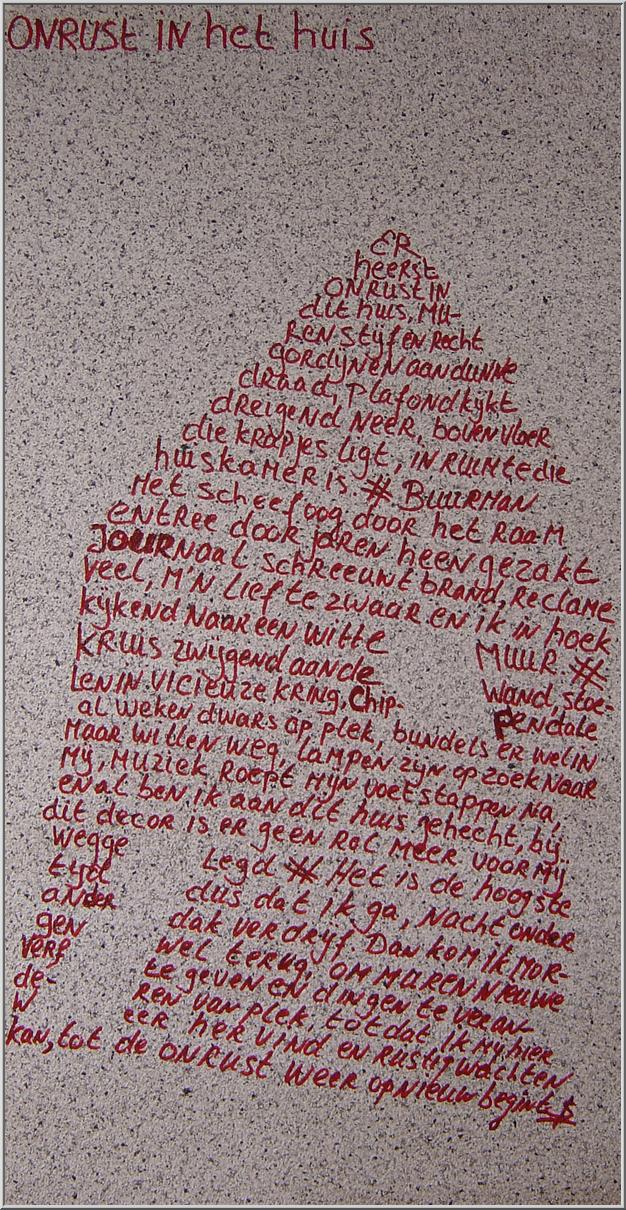 ONRUST IN het huis
ER
heerst
ONRUST IN
dit huis, MU-
REN Stijf en Recht
gordijNEN aan dunne
draad, Plafond kijkt
dreigend Neer, boven vloer
die krapjes ligt, IN RUIMTE die
huiskamer is. # BUURMAN
Met scheef oog door het RaaM
ENTREE door jaren heen gezakt
JOURNaal schreeunt brand, Reclame
veel, M'N Liefste zwaar en ik in hoek
kijkend Naar een witte MUUR #
KRUIS zwijgend aan de Wand, stoe-
LEN IN VICIEUZE KRING, Chip- PENdale
al weken dwars op plek, bundels er wel in
MAAR willen weg, Lampen zijn op zoek Naar
Mij, Muziek Roept Mijn voetstappen Na,
en al ben ik aan dit huis gehecht, bij
dit decor is er geen Rol Meer voor Mij
Wegge Legd # Het is de hoogste
tijd dus dat ik ga, Nacht onder
ander dak verdrijf. Dan kom ik MOR-
gen wel terug, OM MUREN Nieuwe
VERF te geven en dingen te veran-
de- REN van plek, totdat ik Mij hier
W eer her vind en Rustig wachten
kan, tot de ONRUST weer opnieuw begint